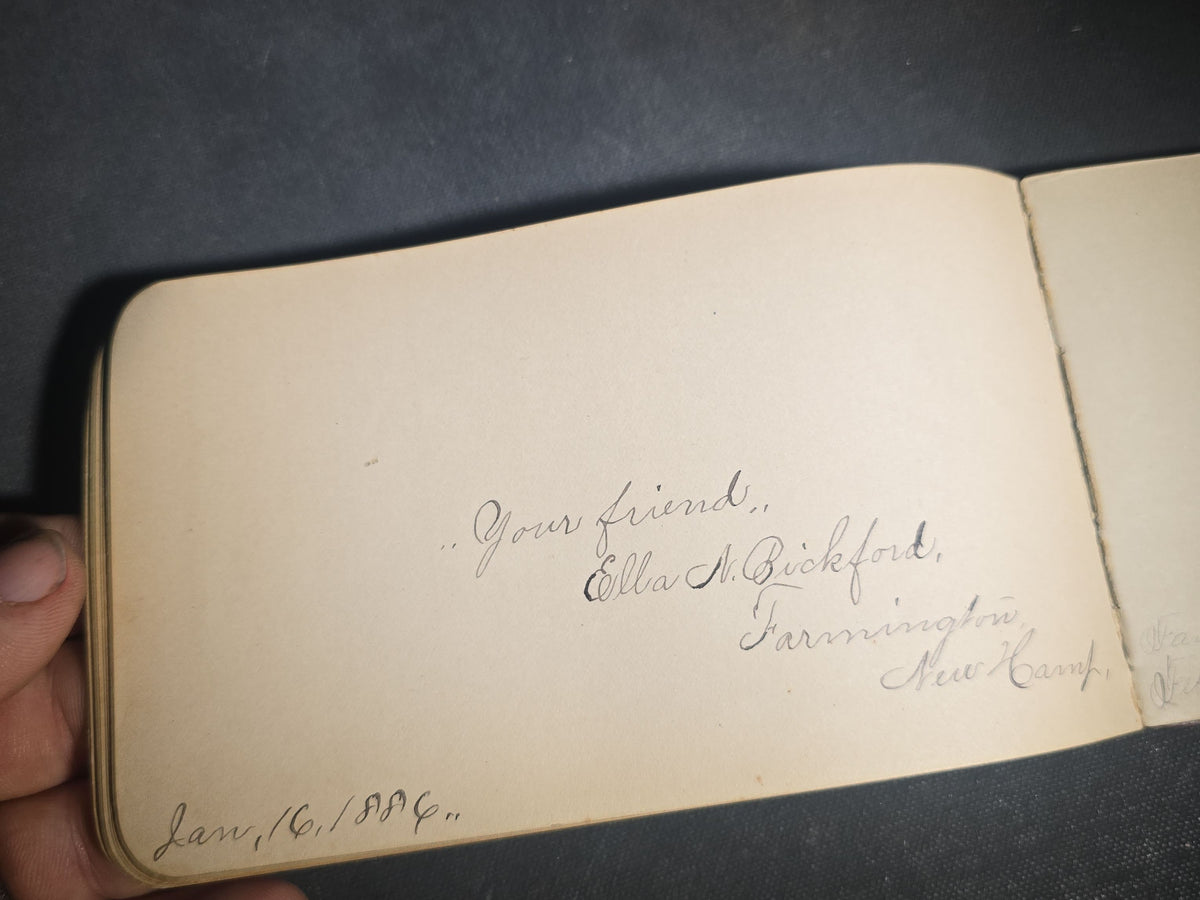 „Your friend„
Ella N. Bickford.
Farmington,
New Hamp.
Jan, 16, 1886„